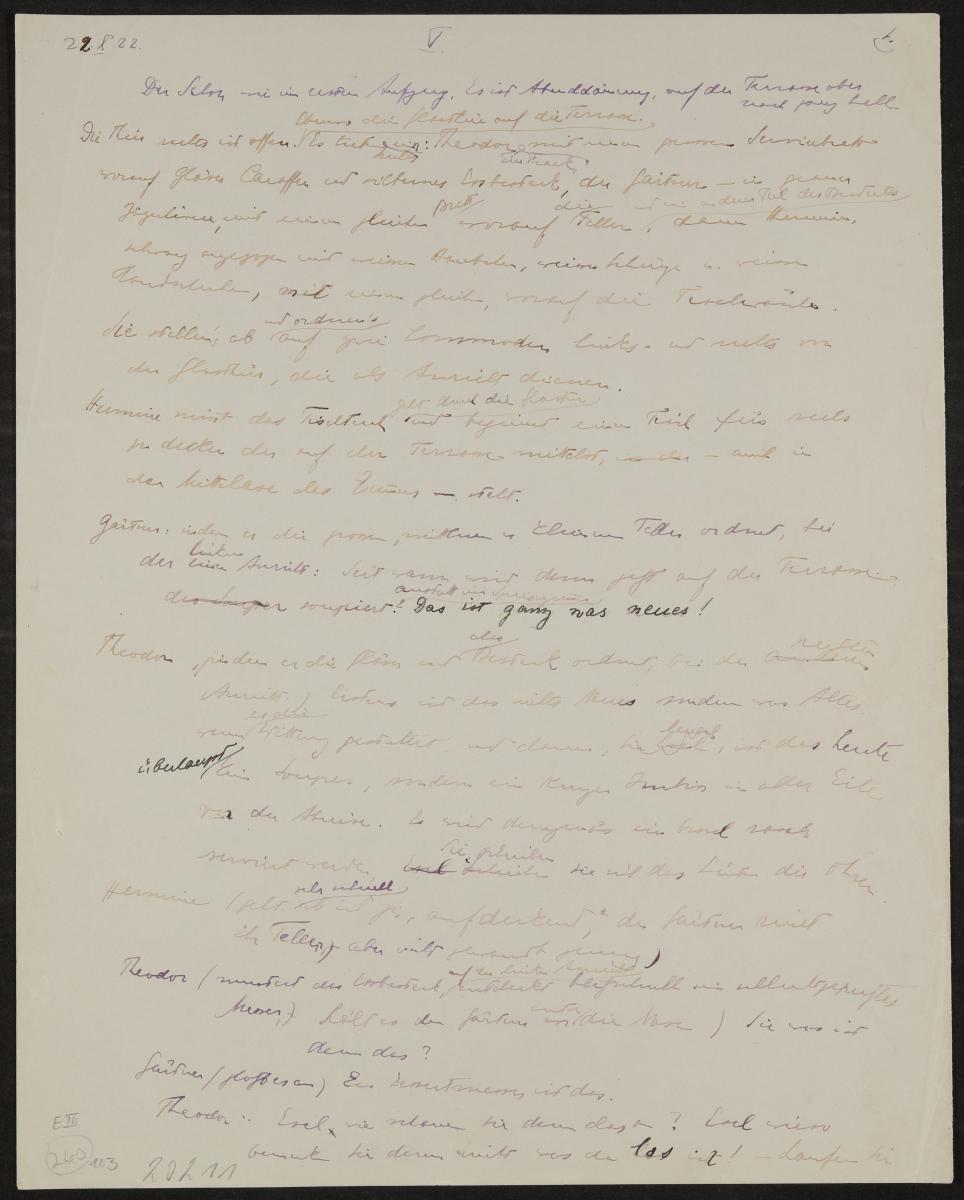 29. X 22. V. 1.
Der Salon wie im ersten Aufzug. Es ist Abenddämmerung, auf der Terrasse aber
noch ganz hell
ebenso die Glasthür auf die Terrasse.
Die Thür rechts ist offen. Es treten ein: Theodor mit einem grossen Servierbrett
worauf Gläser Caraffen und silbernes Essbesteck, der Gärtner – in
mit einem gleichen Brett worauf die Teller, dann Hermine,
angezogen mit weissem Häubchen, weisser Schürze u. weissen
Handschuhen, mit einem gleichen, worauf die Tischwäsche.
und ordnen's
Sie stellen's ab auf zwei Commoden links und rechts von
der Glasthür, die als Anricht dienen.
geht durch die Glasthür
Hermine nimmt das Tischtuch und beginnt einen Tisch für sechs
zu decken der auf der Terrasse mitten, – auch in
der Mittelaxe des Zimmers – steht.
Gärtner: indem er die grossen, mittleren u kleinen Teller ordnet, bei
der linken Anricht: Seit wann wird denn jetzt auf der Terrasse
anstatt im Speisezimmer
soupiert? Das ist ganz was neues!
Theodor, indem er die Gläser und das Besteck ordnet, bei der rechten
Anricht.) Erstens ist das nichts Neues sondern was Altes
wenn es die Witterung gestattet und dann, ist das heute
überhaupt kein Souper, sondern ein kurzer Imbiss in aller Eile
vor der Abreise. Es wird demgemäss ein bissl rasch
serviert werden. Sie schreiben sie sich das hinter die Ohren.
Hermine (geht sehr schnell ab und zu, aufdeckend, der Gärtner reicht
ihr Teller, aber nicht gewandt genug)
Theodor (mustert das Essbesteck, entdeckt auf der linken Anricht blitzschnell ein schlechtgeputztes
Messer, hält es dem Gärtner unter die Nase) Sie was ist
denn das?
Gärtner (glotzt es an) Ein Dessertmesser ist das.
Theodor: Esel, wie schauen Sie denn das an? Esel
bemerken Sie denn nicht was da los ist! – Laufen Sie
E III
240 103
20211